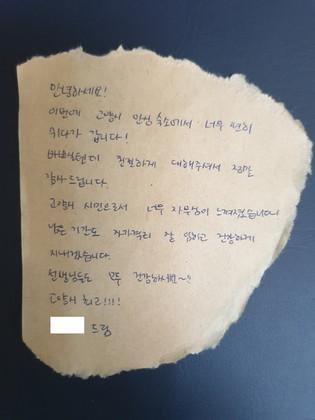 안녕하세요!
이번에 고양시 안심숙소에서 너무 편히
쉬다가 갑니다!
바쁘실텐데 친절하게 대해주셔서 정말
감사드립니다.
고양시 시민으로서 너무 자부심이 느껴졌습니다!
남은 기간도 자가격리 잘 임하고 건강하게
지내겠습니다.
선생님들도 모두 건강하세요~!!
고양시 최고!!!
드림